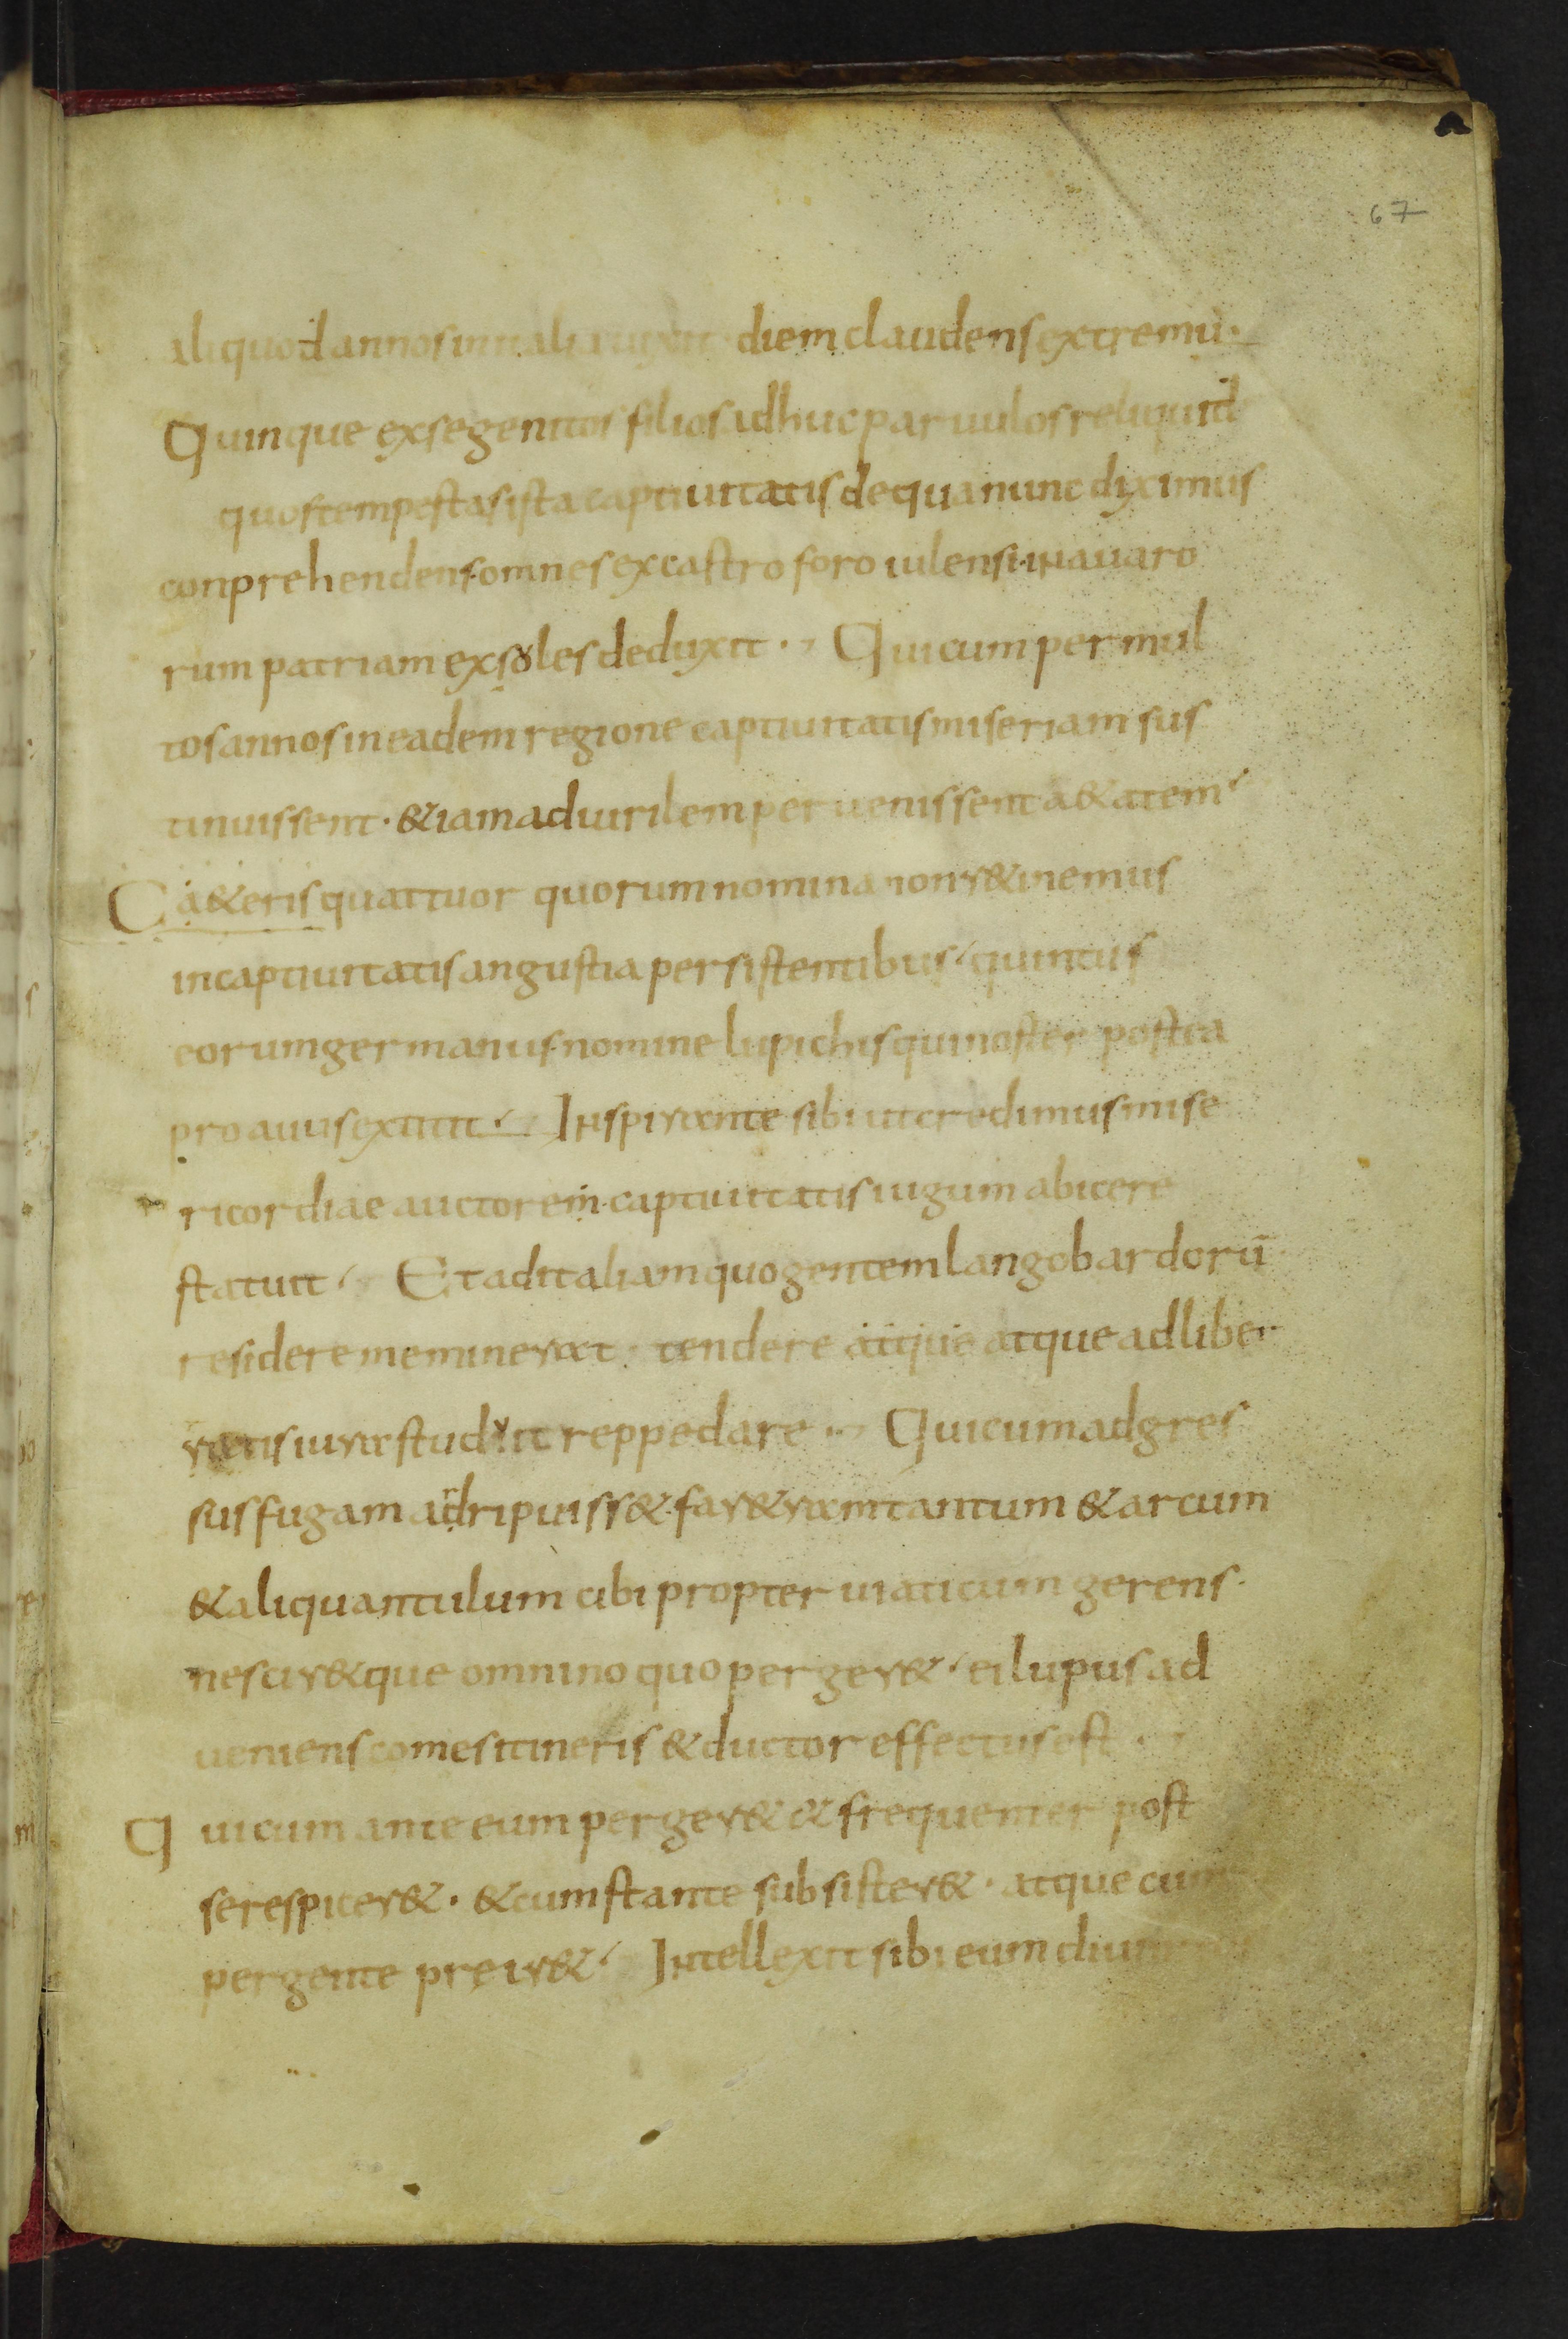 67
aliquod annos in italia uixit diem claudens extremū·
Quinque ex se genitos filios adhuc paruulos reliquid
quos tempestas ista captiuitatis de qua nunc diximus
conprehendens· omnes ex castro foro iulensi· in auaro
rum patriam exsoles deduxit · Qui cum per mul
tos annos in eadem regione captiuitatis miseriam sus
tinuissent · & iam ad uirilem peruenissent a&atem
Ca&eris quattuor quorum nomina non r&inemus
in captiuitatis angustia persistentibus quintus
eorum germanus· nomine lupichis qui noster postea
proauus extitit · Inspirante sibi ut credimus mise
ricordiae auctorem· captiuitatis iugum abicere
statuit · Et ad italiam quo gentem langobardorū
residere meminerat · tendere atque atque ad liber
ratis iura studuit reppedare · Qui cum adgres
sus fugam adripuiss& · far&ram tantum & arcum
& aliquantulum cibi propter uiaticum gerens ·
nescir&que omnino quo perger& · ei lupus ad
ueniens comes itineris & ductor effectus est ·
Qui cum ante eum perger& & frequenter post
se respicer& · & cum stante subsister& · atque cum
pergente preir& · Intellexit sibi eum